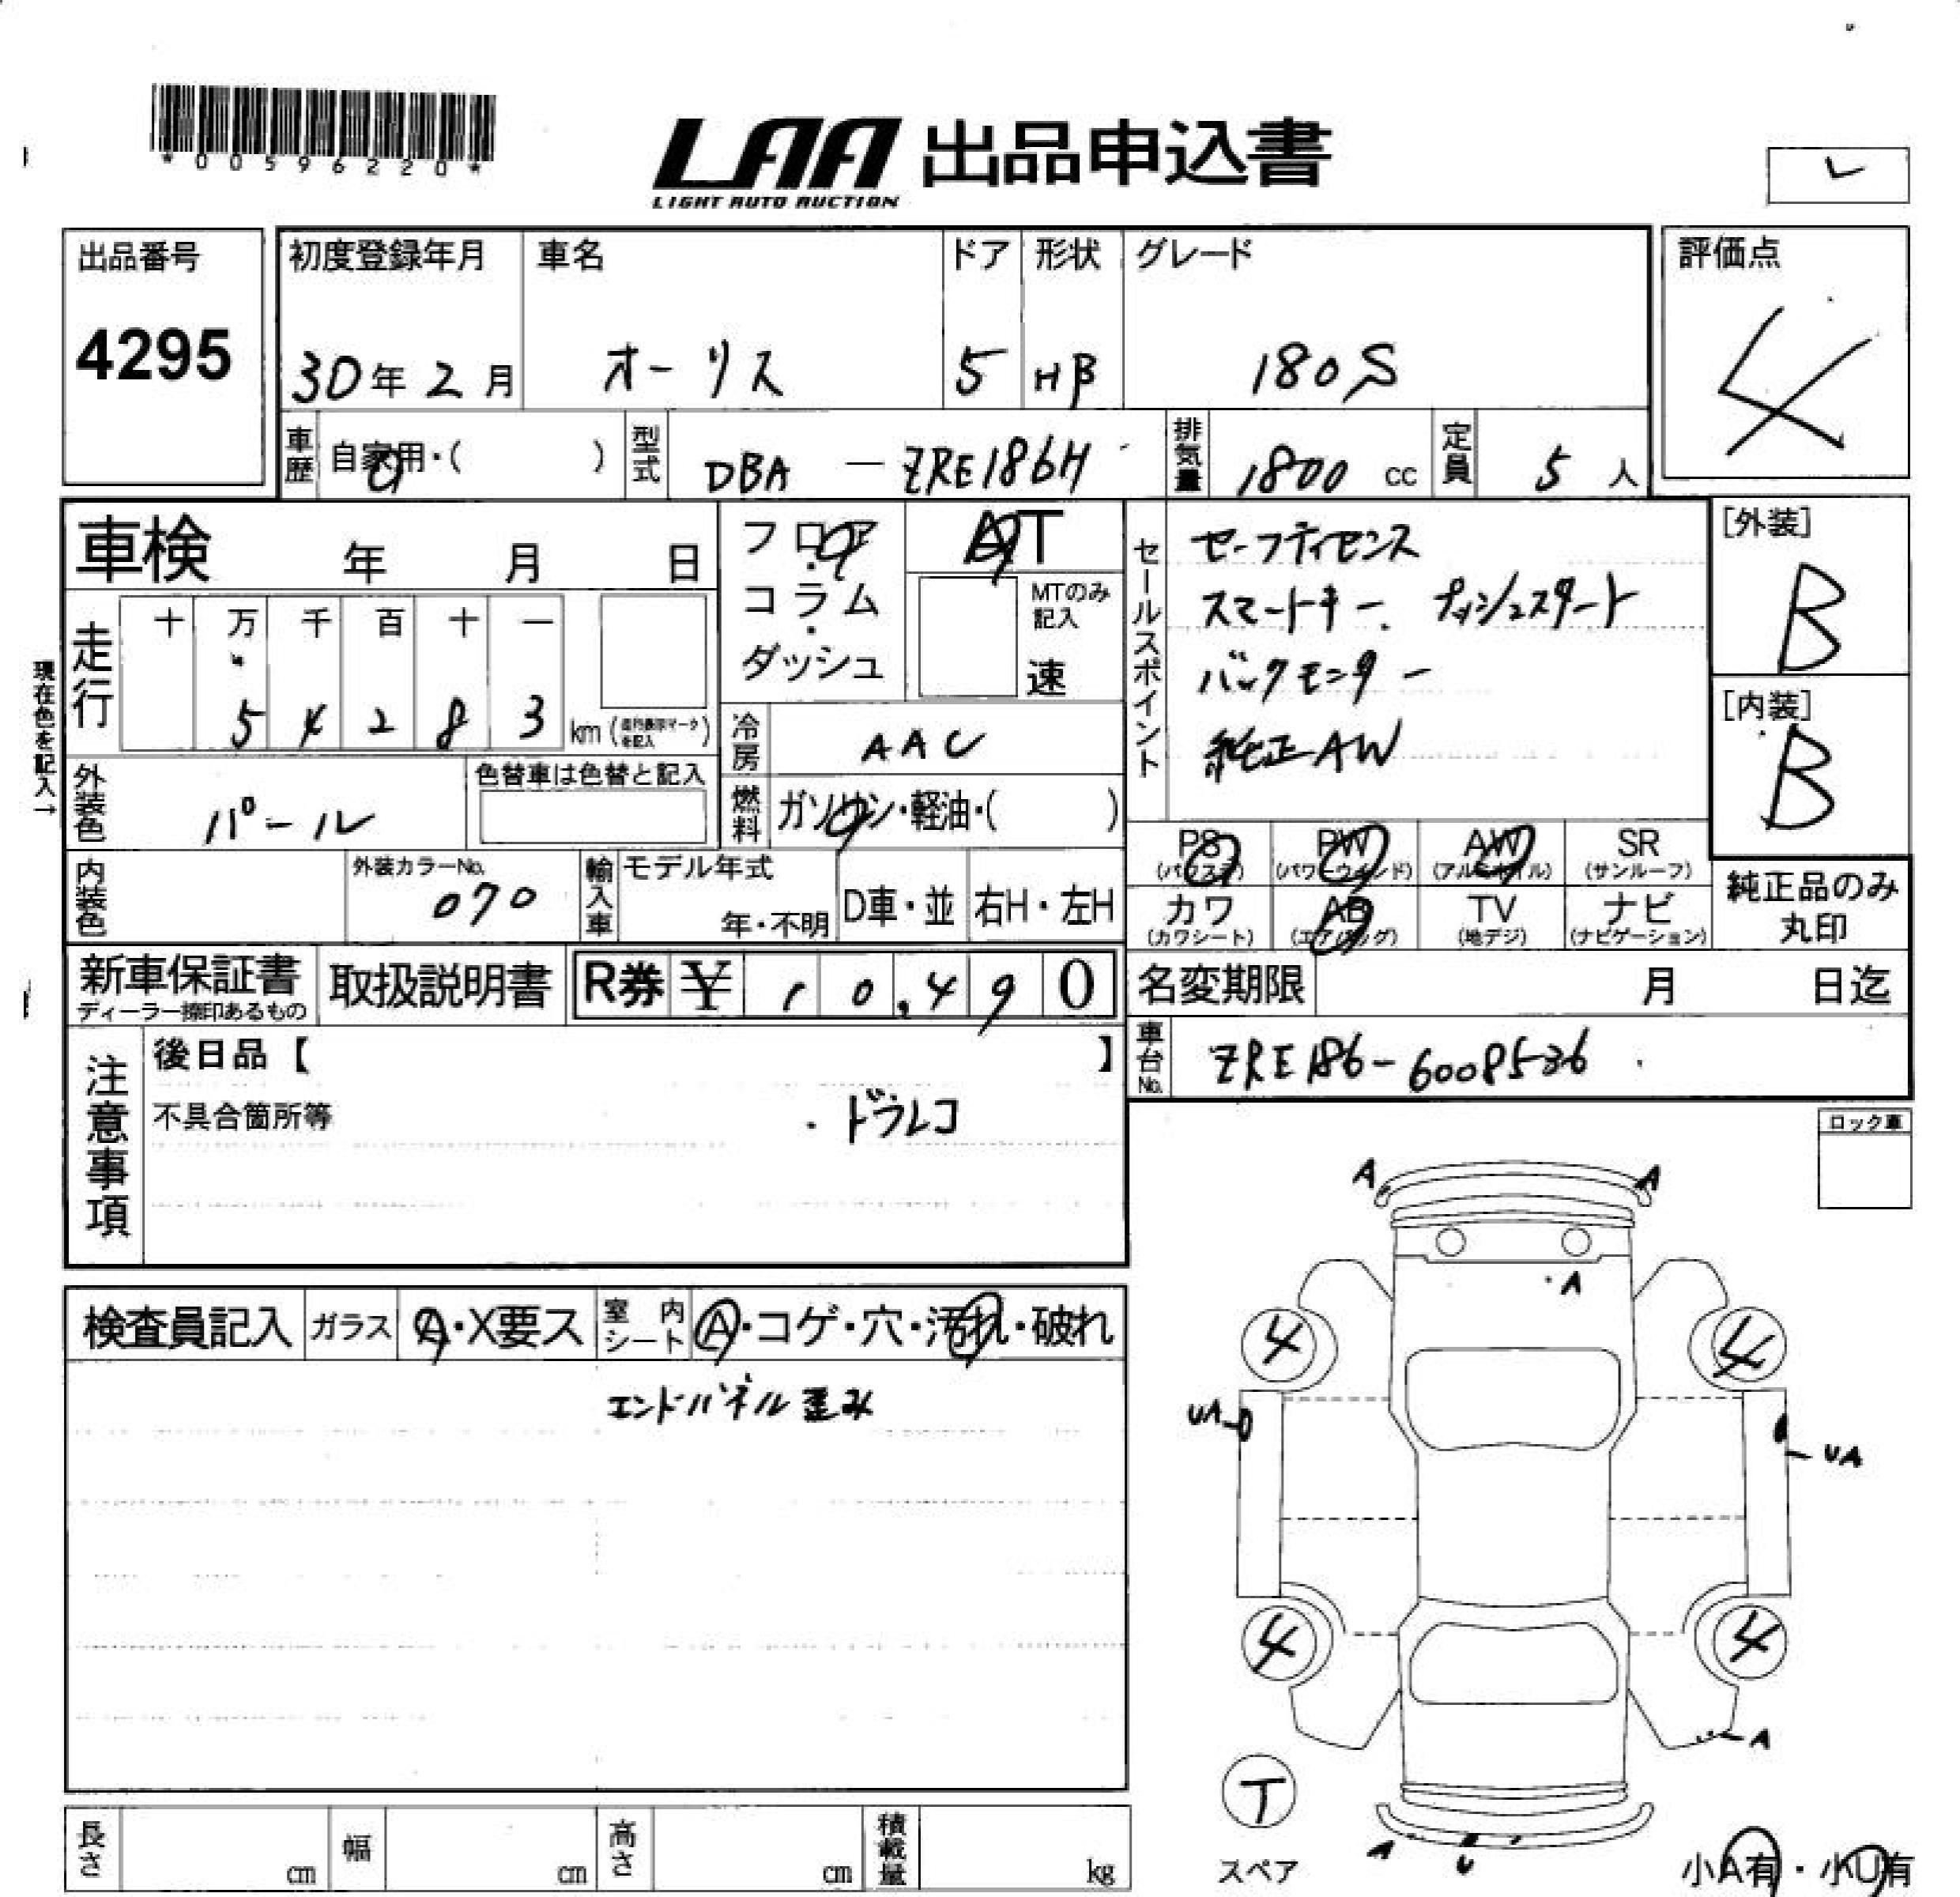 *00596220*
LAA 出品申込書
LIGHT AUTO AUCTION
レ
出品番号
4295
初度登録年月
30年2月
車名
オーリス
ドア
5
形状
HB
グレード
180S
評価点
4
車歴 自家用・( )
型式 DBA - ZRE186H
排気量 1800 cc
定員 5 人
車検 年 月 日
現在色を記入→
走行
十 万 千 百 十 一
5 4 2 8 3 km
フロア・コラム・ダッシュ
AT
MTのみ記入
速
冷房 AAC
燃料 ガソリン・軽油・( )
外装色 パール
色替車は色替と記入
内装色
外装カラーNo.
070
輸入車
モデル年式
年・不明
D車・並
右H・左H
セールスポイント
セーフティセンス
スマートキー. プッシュスタート
バックモニター
純正AW
[外装]
B
[内装]
B
PS (パワステ)
PW (パワーウィンド)
AW (アルミホイル)
SR (サンルーフ)
カワ (カワシート)
AB (エアバッグ)
TV (地デジ)
ナビ (ナビゲーション)
純正品のみ
丸印
新車保証書
ディーラー捺印あるもの
取扱説明書
R券 ¥ 10,490
名変期限 月 日迄
車台No. ZRE186-6008536
注意事項
後日品【 】
不具合箇所等
・ドラレコ
ロック車
検査員記入
ガラス A・X要ス
室内シート A・コゲ・穴・汚れ・破れ
エンドパネル歪み
A
A
A
4
4
UA
UA
4
4
A
T
スペア
A
U
小A有・小U有
長さ cm
幅 cm
高さ cm
積載量 kg